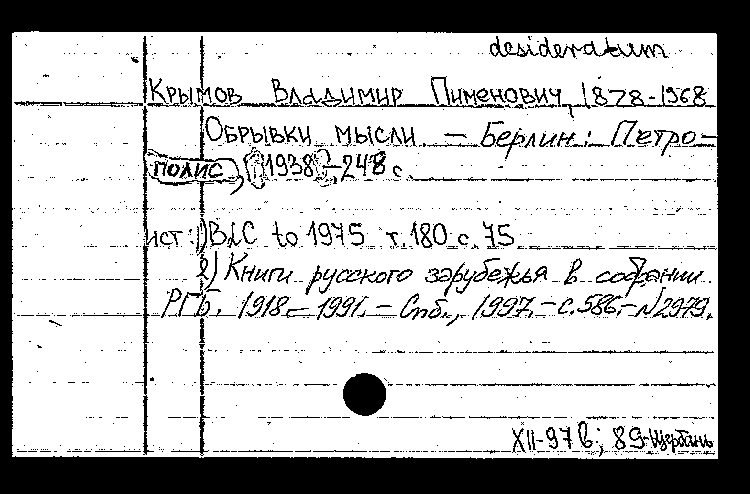 desideratum
Крымов Владимир Пименович, 1878-1968
Обрывки мысли. — Берлин: Петро-
полис, [1938]. - 248 с.
ист: 1) BLC to 1975 т. 180 с. 75
2) Книги русского зарубежья в собрании
РГБ. 1918 - 1991. - Спб., 1997. - с. 586. - N2979.
XII-97 в; 89-Щербань